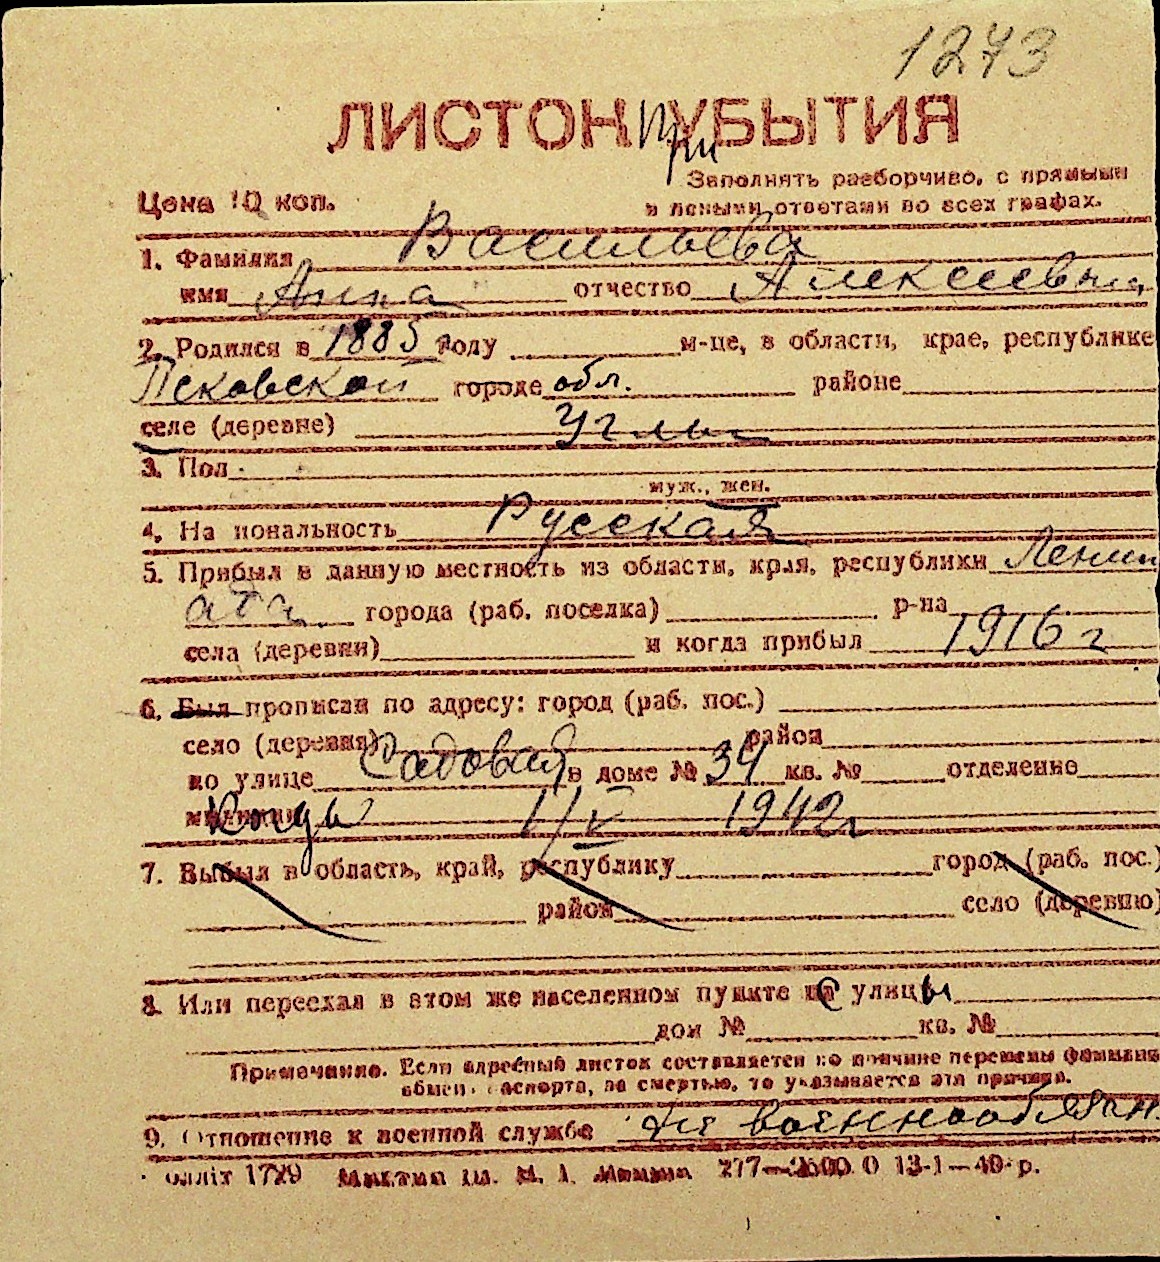 1273
ЛИСТОК при УБЫТИЯ
Заполнять разборчиво, с прямыми
Цена 10 коп.
и ясными ответами во всех графах.
1. Фамилия Васильева
имя Анна отчество Алексеевна
2. Родился в 1885 году м-це, в области, крае, республике
Псковской городе обл. районе
селе (деревне) Углы
3. Пол
муж., жен.
4. Национальность Русская
5. Прибыл в данную местность из области, края, республики Ленин
города (раб. поселка) р-на
села (деревни) и когда прибыл 1916 г
6. Был прописан по адресу: город (раб. пос.)
село (деревня) район
по улице Садовая в доме № 34 кв. № отделение
милиции 1/V 1942г
7. Выбыл в область, край, республику город (раб. пос.)
район село (деревню)
8. Или переехал в этом же населенном пункте с улицы
дом № кв. №
Примечание. Если адресный листок составляется по причине перемены фамилии
обмен паспорта, за смертью, то указывается эта причина.
9. Отношение к военной службе Не военнообязан
оллiт 1729 277—2500 0 13-1—40 р.